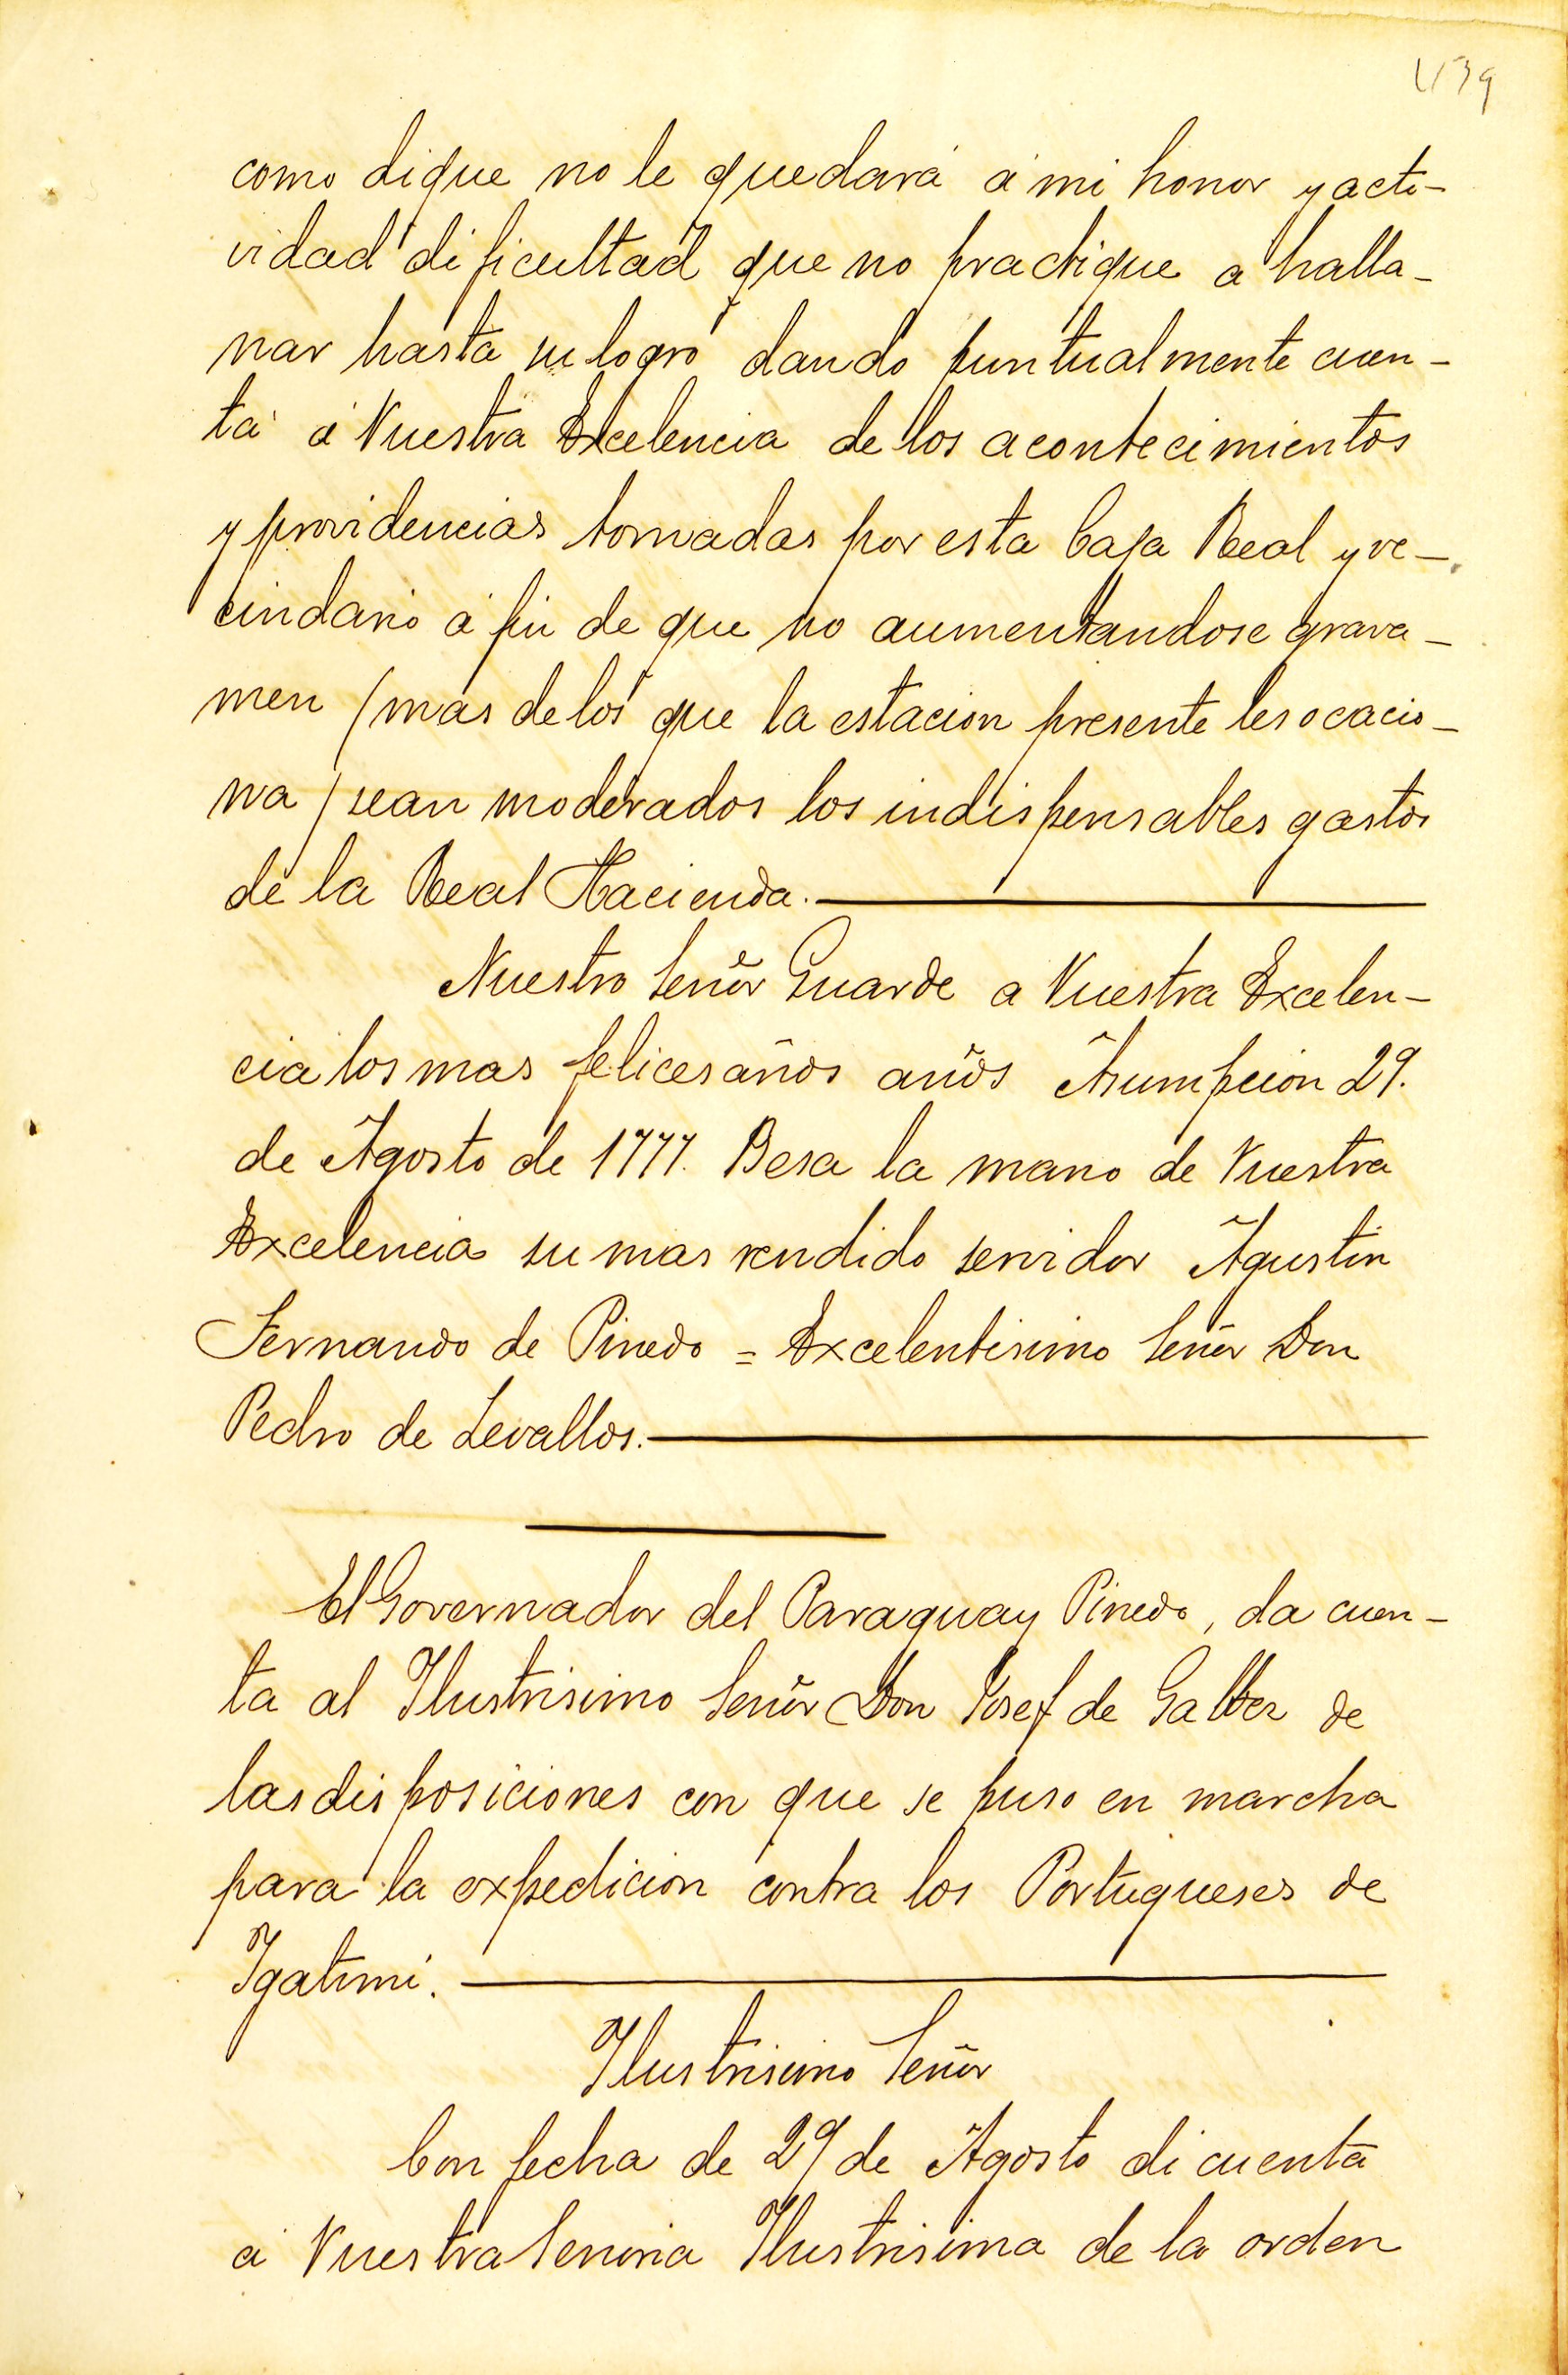 439
como dique no le quedará á mi honor y acti-
vidad dificultad que no practique a halla-
nar hasta su logro dando puntualmente cuen-
ta á Vuestra Excelencia de los acontecimientos
y providencias tomadas por esta Caja Real y ve-
cindario á fin de que no aumentandose grava-
men (mas de los que la estacion presente les ocacio-
na) sean moderados los indispensables gastos
de la Real Hacienda.
Nuestro Señor Guarde a Vuestra Excelen-
cia los mas felices años años Asumpcion 29.
de Agosto de 1777. Besa la mano de Vuestra
Excelencia su mas rendido servidor Agustin
Fernando de Pinedo = Excelentisimo Señor Don
Pedro de Zevallos.
El Governador del Paraguay Pinedo, da cuen-
ta al Ilustrisimo Señor Don Josef de Galbez de
las disposiciones con que se puso en marcha
para la expedicion contra los Portugueses de
Igatimi.
Ilustrisimo Señor
Con fecha de 29 de Agosto di cuenta
á Vuestra Senoria Ilustrisima de la orden